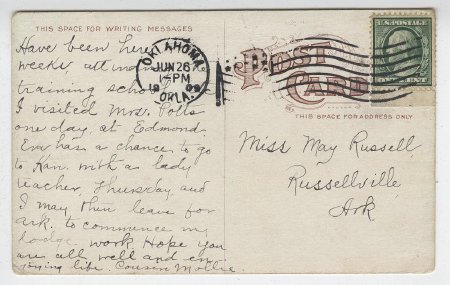 THIS SPACE FOR WRITING MESSAGES
Have been here
weeks, attending
training school
I visited Mrs. Potts
one day at Edmond.
Eva has a chance to go
to Kan. with as lady
teacher, Thursday and
I may then leave for
Ark. to commence my
lodge work Hope you
are all well and en-
joying life. Cousin Mollie.
OKLAHOMA
JUN 26
1-PM
OKLA.
POST
CARD
U.S. POSTAGE
ONE CENT
THIS SPACE FOR ADDRESS ONLY
Miss May Russell,
Russellville,
Ark